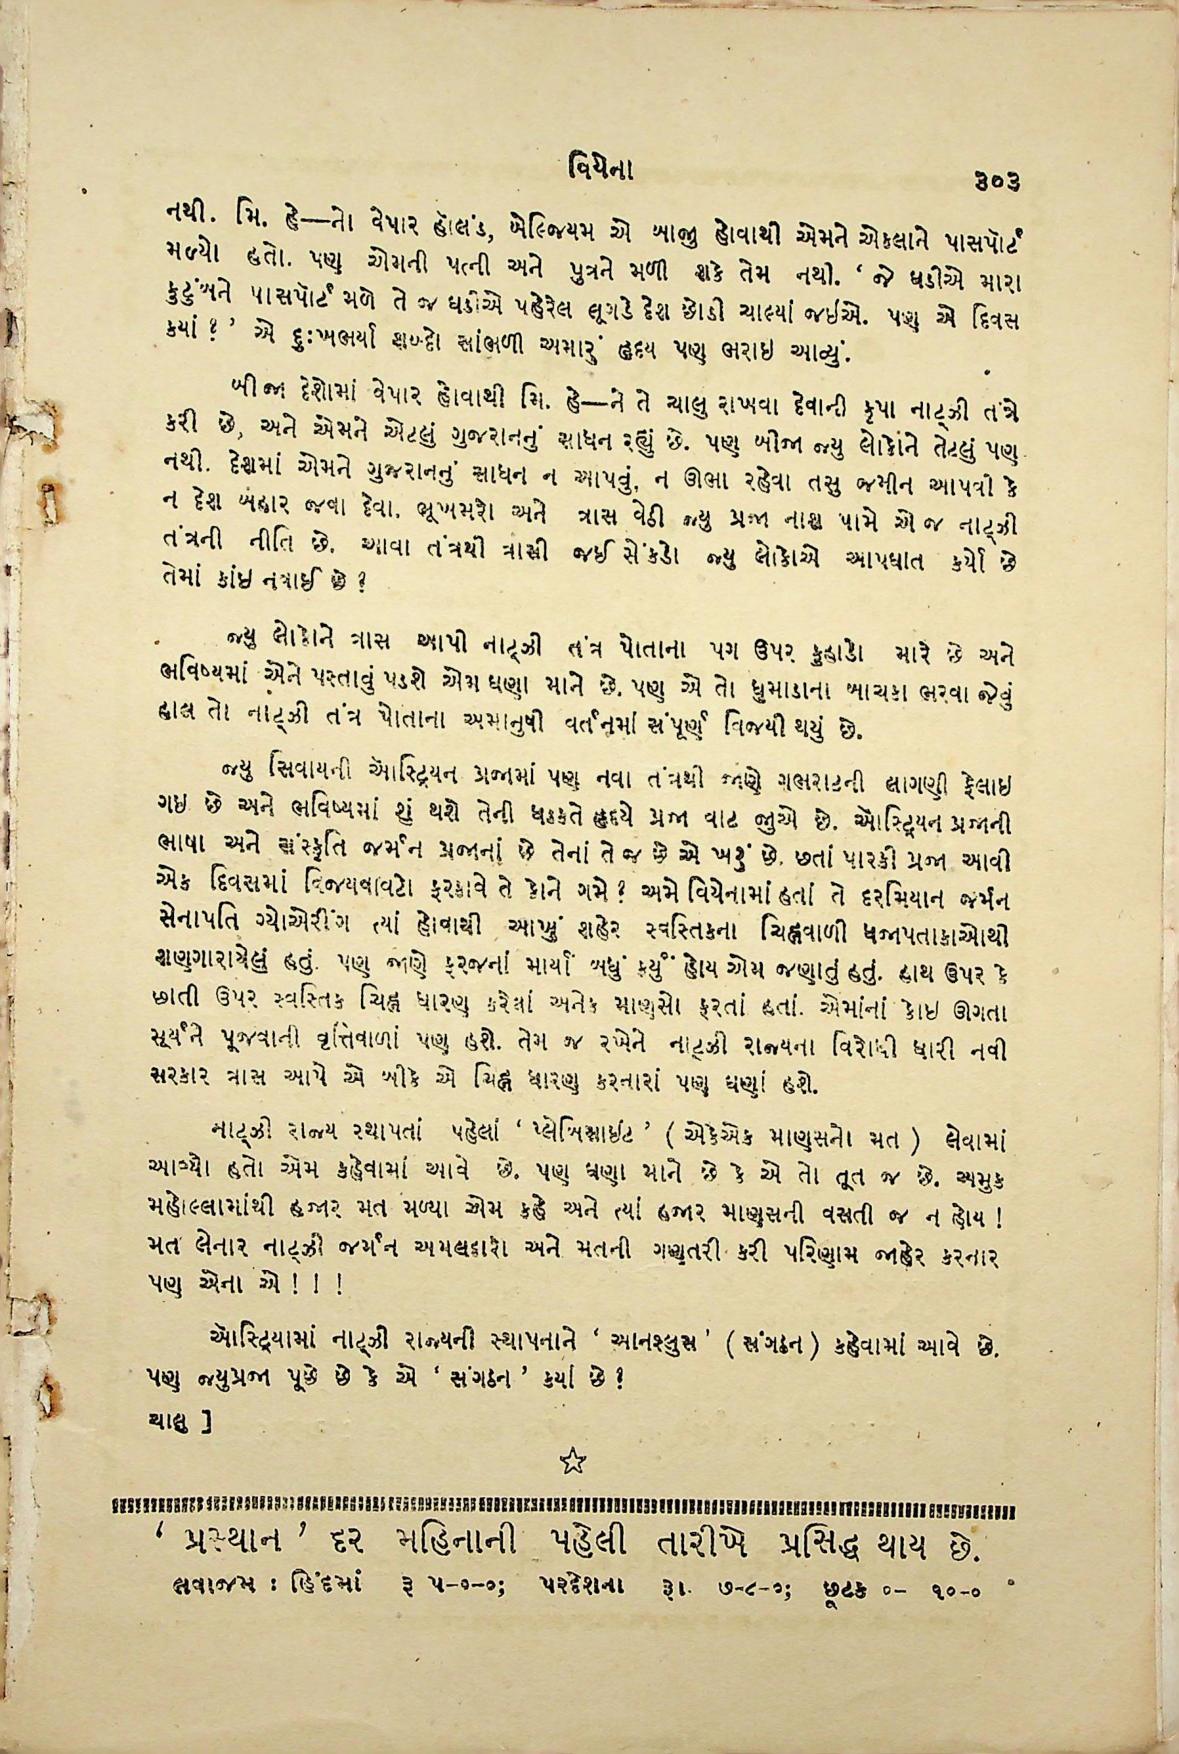 વિયેના
૩૦૩
નથી. મિ. હે—નો વેપાર હૉલંડ, બેલ્જિયમ એ બાજુ હોવાથી એમને એકલાને પાસપૉર્ટ
મળ્યો હતો. પણ એમની પત્ની અને પુત્રને મળી શકે તેમ નથી. ‘ જે ઘડીએ મારા
કુટુંબને પાસપૉર્ટ મળે તે જ ઘડીએ પહેરેલ લૂગડે દેશ છોડી ચાલ્યાં જઈએ. પણ એ દિવસ
ક્યાં ? ’ એ દુઃખભર્યા શબ્દો સાંભળી અમારું હૃદય પણ ભરાઇ આવ્યું.
બીજા દેશોમાં વેપાર હોવાથી મિ. હે—ને તે ચાલુ રાખવા દેવાની કૃપા નાટ્ઝી તંત્રે
કરી છે, અને એમને એટલું ગુજરાનનું સાધન રહ્યું છે. પણ બીજા જ્યુ લોકોને તેટલું પણ
નથી. દેશમાં એમને ગુજરાનનું સાધન ન આપવું, ન ઊભા રહેવા તસુ જમીન આપવી કે
ન દેશ બહાર જવા દેવા. ભૂખમરો અને ત્રાસ વેઠી જ્યુ પ્રજા નાશ પામે એ જ નાટ્ઝી
તંત્રની નીતિ છે. આવા તંત્રથી ત્રાસી જઈ સેંકડો જ્યુ લોકોએ આપઘાત કર્યો છે
તેમાં કાંઇ નવાઈ છે ?
જ્યુ લોકોને ત્રાસ આપી નાટ્ઝી તંત્ર પોતાના પગ ઉપર કુહાડો મારે છે અને
ભવિષ્યમાં એને પસ્તાવું પડશે એમ ઘણા માને છે. પણ એ તો ધુમાડાના બાચકા ભરવા જેવું
હાલ તો નાટ્ઝી તંત્ર પોતાના અમાનુષી વર્તનમાં સંપૂર્ણ વિજયી થયું છે.
જ્યુ સિવાયની ઑસ્ટ્રિયન પ્રજામાં પણ નવા તંત્રથી જાણે ગભરાટની લાગણી ફેલાઇ
ગઇ છે અને ભવિષ્યમાં શું થશે તેની ધડકતે હૃદયે પ્રજા વાટ જુએ છે. ઑસ્ટ્રિયન પ્રજાની
ભાષા અને સંસ્કૃતિ જર્મન પ્રજાનાં છે તેનાં તે જ છે એ ખરું છે. છતાં પારકી પ્રજા આવી
એક દિવસમાં વિજયવાવટો ફરકાવે તે કોને ગમે ? અમે વિયેનામાં હતાં તે દરમિયાન જર્મન
સેનાપતિ ગ્યોએરીંગ ત્યાં હોવાથી આખું શહેર સ્વસ્તિકના ચિહ્નવાળી ધજાપતાકાઓથી
શણગારાયેલું હતું. પણ જાણે ફરજનાં માર્યાં બધું કર્યું હોય એમ જણાતું હતું. હાથ ઉપર કે
છાતી ઉપર સ્વસ્તિક ચિહ્ન ધારણ કરેલાં અનેક માણસો ફરતાં હતાં. એમાંનાં કોઇ ઊગતા
સૂર્યને પૂજવાની વૃત્તિવાળાં પણ હશે. તેમ જ રખેને નાટ્ઝી રાજ્યના વિરોધી ધારી નવી
સરકાર ત્રાસ આપે એ બીકે એ ચિહ્ન ધારણ કરનારાં પણ ઘણાં હશે.
નાટ્ઝી રાજ્ય સ્થાપતાં પહેલાં ‘ પ્લેબિસાઈટ ’ ( એકેએક માણસનો મત ) લેવામાં
આવ્યો હતો એમ કહેવામાં આવે છે. પણ ઘણા માને છે કે એ તો તૂત જ છે. અમુક
મહોલ્લામાંથી હજાર મત મળ્યા એમ કહે અને ત્યાં હજાર માણસની વસતી જ ન હોય !
મત લેનાર નાટ્ઝી જર્મન અમલદારો અને મતની ગણતરી કરી પરિણામ જાહેર કરનાર
પણ એના એ ! ! !
ઑસ્ટ્રિયામાં નાટ્ઝી રાજ્યની સ્થાપનાને ‘ આનશ્લુસ ’ ( સંગઠન ) કહેવામાં આવે છે.
પણ જ્યુપ્રજા પૂછે છે કે એ ‘ સંગઠન ’ ક્યાં છે ?
ચાલુ ]
‘ પ્રસ્થાન ’ દર મહિનાની પહેલી તારીખે પ્રસિદ્ધ થાય છે.
લવાજમ : હિંદમાં રૂ ૫-૦-૦; પરદેશના રૂા. ૭-૮-૦; છૂટક ૦- ૧૦-૦